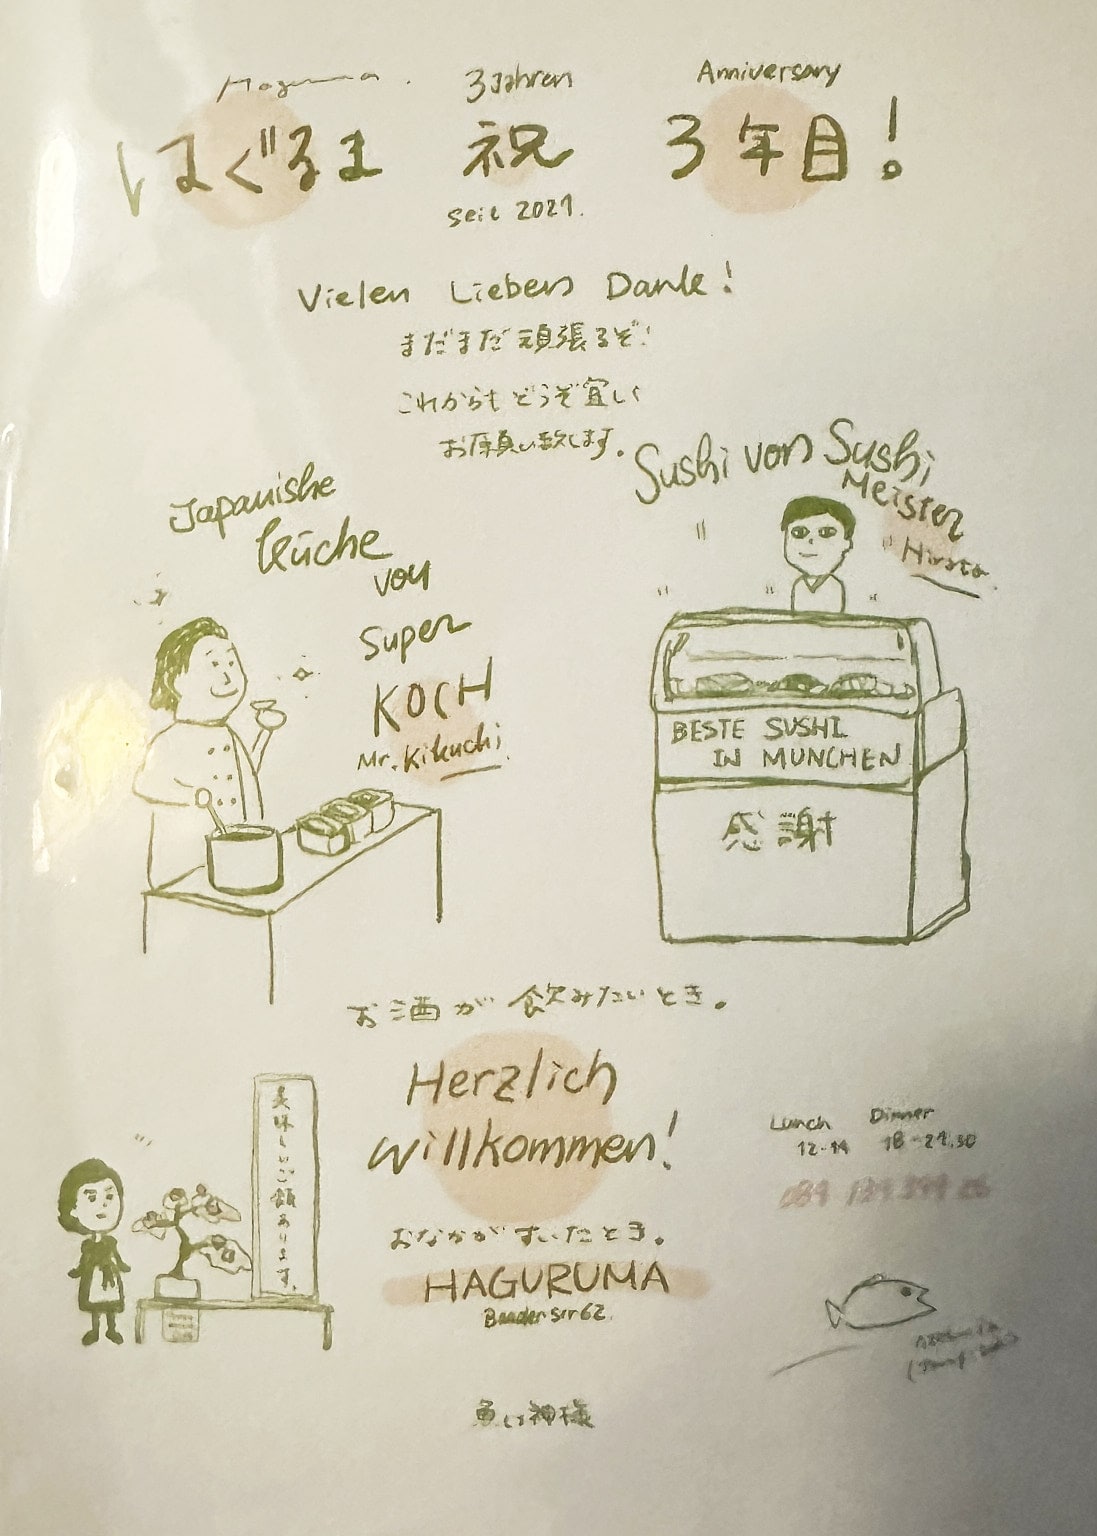 Haguruma. 3 Jahren Anniversary
はぐるま 祝 3年目!
seit 2021.
Vielen Lieben Dank!
まだまだ頑張るぞ!
これからもどうぞ宜しく
お願い致します。
Japanishe
Küche
von
Super
KOCH
Mr. Kikuchi
Sushi von Sushi
Meister
Hirata
BESTE SUSHI
IN MUNCHEN
感謝
お酒が飲みたいとき。
Herzlich
willkommen!
美味しいご飯あります。
Lunch Dinner
12-14 18-21.30
おなかがすいたとき。
HAGURUMA
Baader Str 62